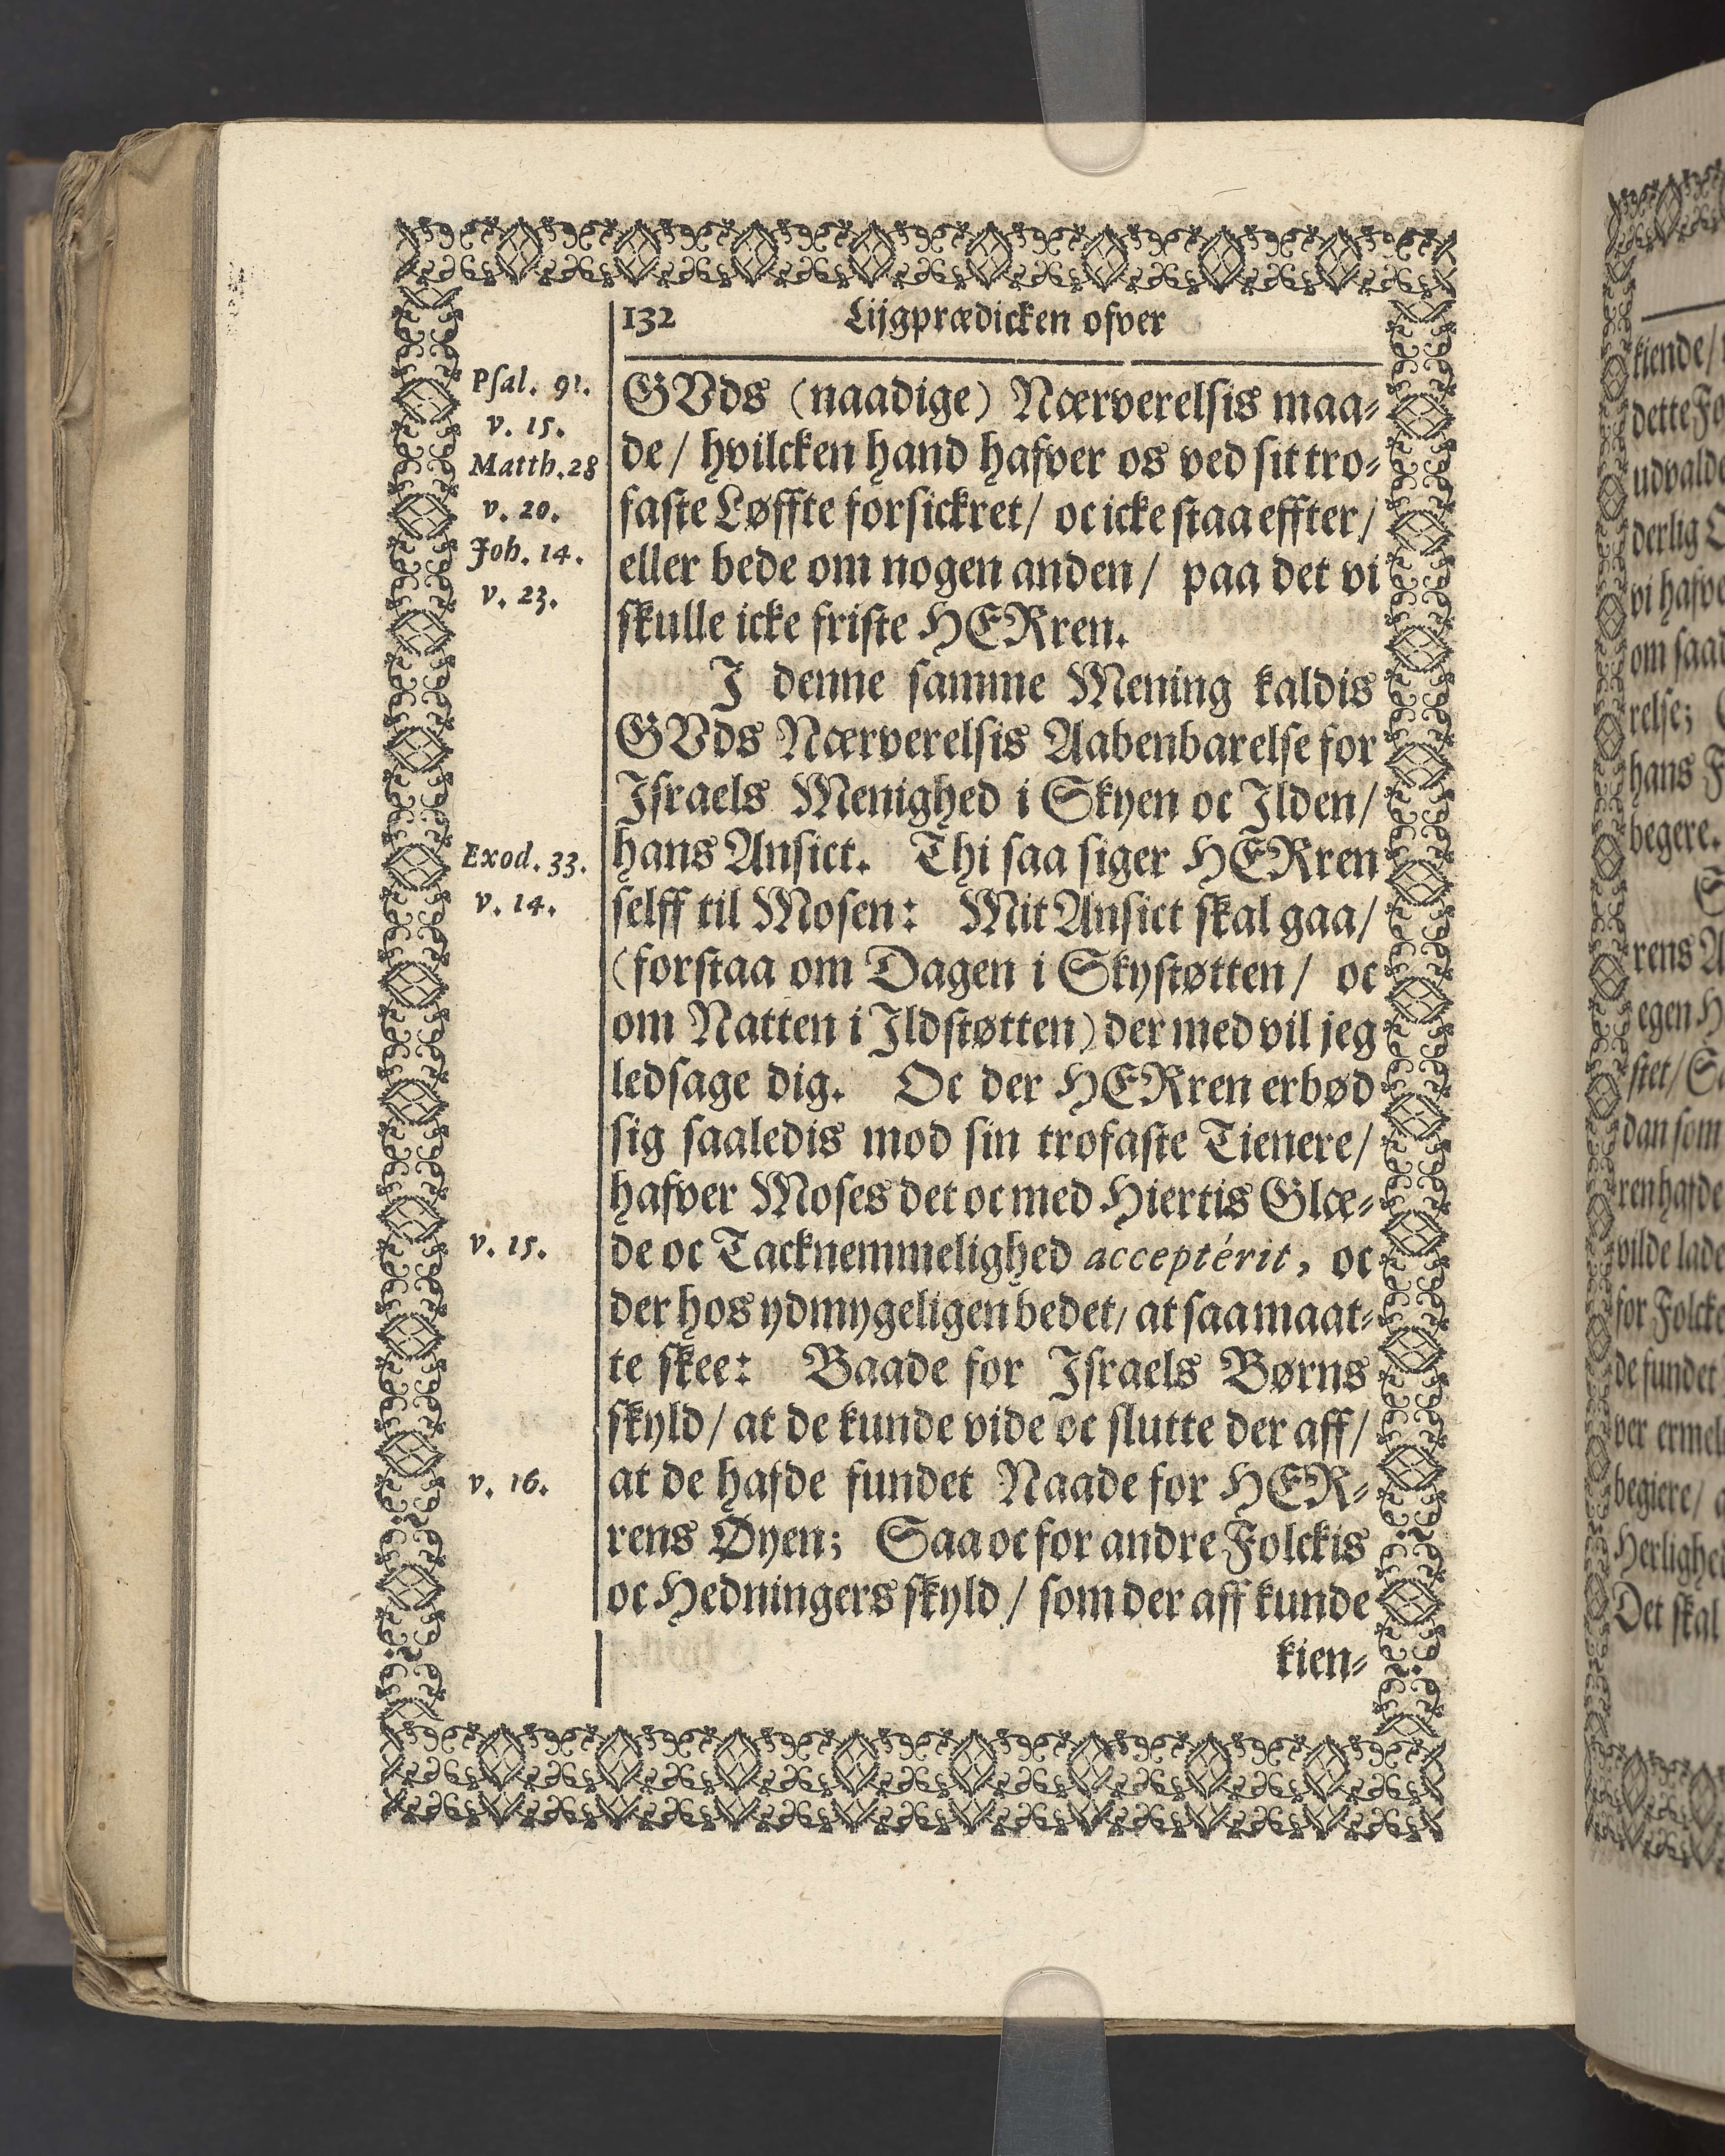 132 Lijgprædicken ofver
Psal. 91.
v. 15.
Matth. 28
v. 20.
Joh. 14.
v. 23.
GVds (naadige) Nærverelsis maa-
de / hvilcken hand hafver os ved sit tro-
faste Løffte forsickret / oc icke staa effter /
eller bede om nogen anden / paa det vi
skulle icke friste HERren.
J denne samme Mening kaldis
GVds Nærverelsis Aabenbarelse for
Jsraels Menighed i Skyen oc Jlden /
Exod. 33.
v. 14.
hans Ansict. Thi saa siger HERren
selff til Mosen: Mit Ansict skal gaa /
(forstaa om Dagen i Skystøtten / oc
om Natten i Jldstøtten) der med vil jeg
ledsage dig. Oc der HERren erbød
sig saaledis mod sin trofaste Tienere /
hafver Moses det oc med Hiertis Glæ-
v. 15.
de oc Tacknemmelighed acceptérit, oc
der hos ydmygeligen bedet / at saa maat-
te skee: Baade for Jsraels Børns
skyld / at de kunde vide oc slutte der aff /
v. 16.
at de hafde fundet Naade for HER-
rens Øyen; Saa oc for andre Folckis
oc Hedningers skyld / som der aff kunde
kien-
kiende /
dette Fo
udvalde
derlig
vi hafve
om saad
relse;
hans F
begere.
rens A
egen H
stet / Sa
dan som
ren hafde
vilde lade
for Folcke
de fundet
ver ermel
begiere / a
Herlighed
Det skal